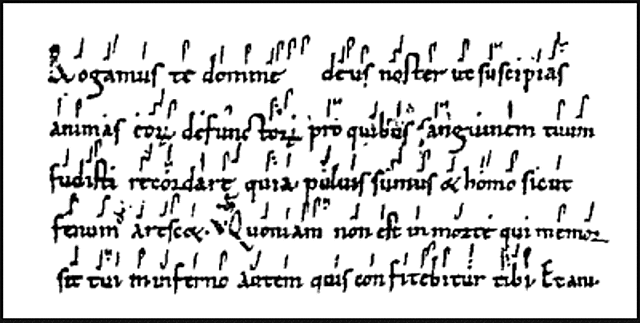 Rogamus te domine deus noster ut suscipias
animas eorum defunctorum pro quibus sanguinem tuum
fudisti recordare quia pulvis sumus & homo sicut
fenum Quoniam non est in morte qui memor
sit tui in inferno autem quis confitebitur tibi Et au